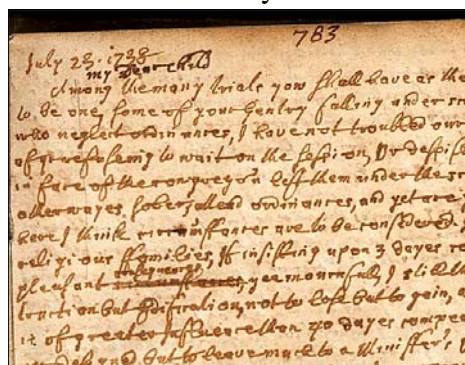 783
July 23. 1738
my Dear child
Among the many trials yow shall have as the
to be one, some of your Gentry falling under sc
who neglect ordinances, I have not troubled
of refuseing to wait on the session, Or despise
in face of the congregõn left them under the sc
otherwayes sober, attend ordinances, and yet are
here I think circumstances are to be considered
religious ffamilies, If insisting upon 3 dayes re
consequences
pleasant yea mournfull, I still th
truction but Edification, not to lose but to gain, a
it of greater Influence than 20 dayes compe
but to leave much to a Minister's